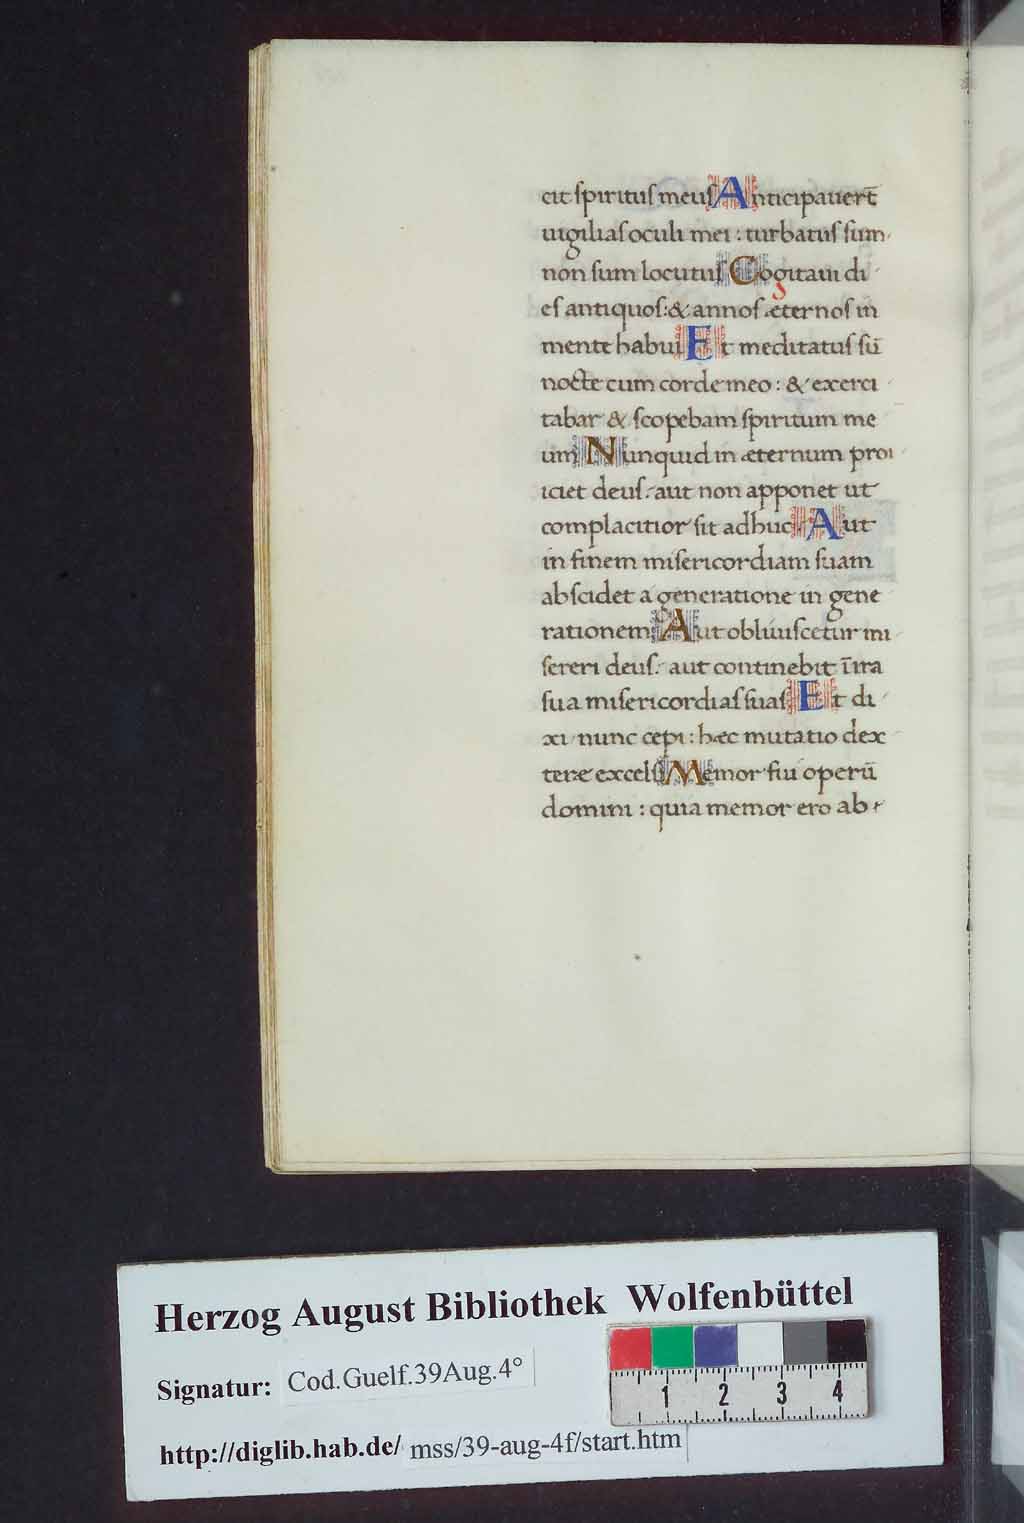 cit spiritus meus Anticipauert̄
uigilias oculi mei : turbatus sum
non sum locutus Cogitaui di
es antiquos : & annos æternos in
mente habui Et meditatus sū
nocte cum corde meo : & exerci
tabar & scopebam spiritum me
um Nunquid in æternum proi
iciet deus : aut non apponet ut
complacitior sit adhuc Aut
in finem misericordiam suam
abscidet a generatione in gene
rationem Aut obliuiscetur mi
sereri deus : aut continebit ī ira
sua misericordias suas Et di
xi nunc cepi : hæc mutatio dex
teræ excelsi Memor fui operū
domini : quia memor ero ab
Herzog August Bibliothek Wolfenbüttel
Signatur: Cod.Guelf.39Aug.4°
http://diglib.hab.de/ mss/39-aug-4f/start.htm
1 2 3 4